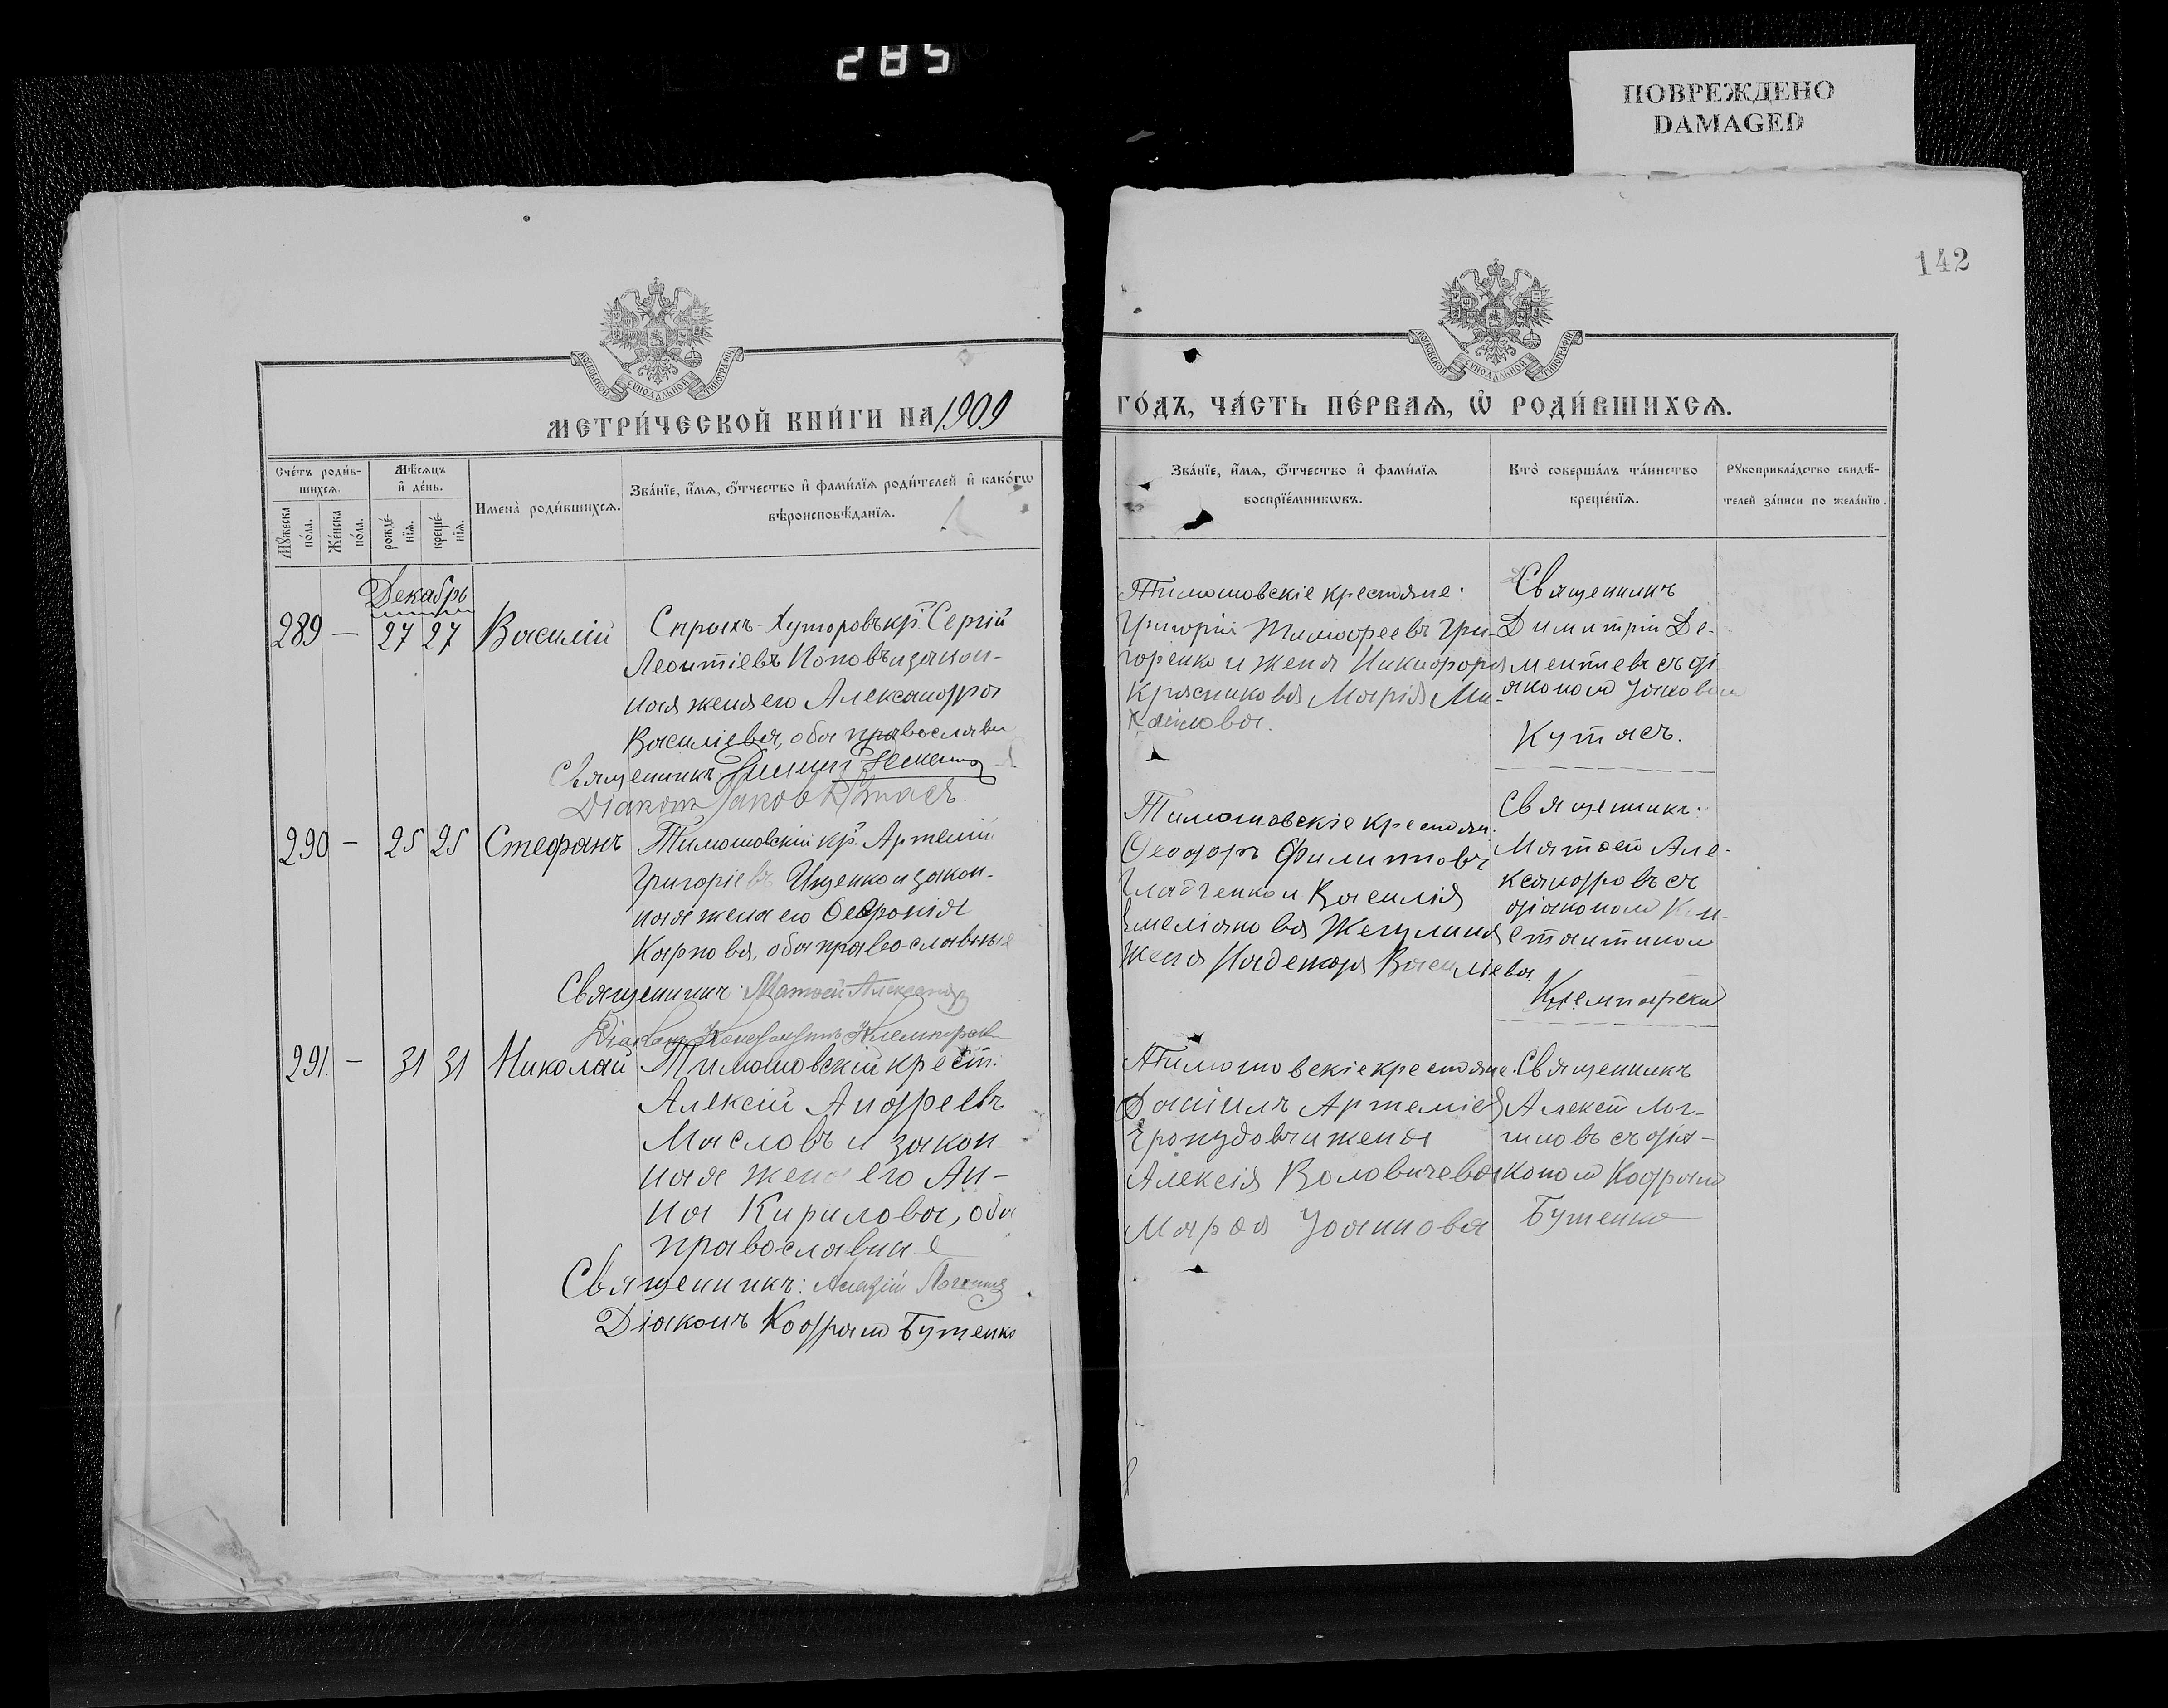 285
ПОВРЕЖДЕНО
DAMAGED
142
МОСКОВСКОЙ СѴНОДАЛЬНОЙ ТИПОГРАФІИ
МОСКОВСКОЙ СѴНОДАЛЬНОЙ ТИПОГРАФІИ
МЕТРИ́ЧЕСКОЙ КНИ́ГИ НА 1909
ГО́ДЪ, ЧА́СТЬ ПЕ́РВАѦ, Ѡ҆ РОДИ́ВШИХСѦ.
Сче́тъ роди́в-
шихсѧ.
Мꙋ́жеска по́ла.
Же́нска по́ла.
Мѣ́сѧцъ
и҆ де́нь.
рожде́-
нїѧ.
креще́-
нїѧ.
И҆мена̀ роди́вшихсѧ.
Зва́нїе, и҆́мѧ, ѻ҆́тчество и҆ фами́лїѧ роди́телей и҆ како́гѡ
вѣроисповѣ́данїѧ.
Зва́нїе, и҆́мѧ, ѻ҆́тчество и҆ фами́лїѧ
воспрїе́мникѡвъ.
Кто̀ соверша́лъ та́инство
креще́нїѧ.
Рꙋкоприкла́дство свидѣ́-
телей за́писи по жела́нїю.
Декабрь
289 — 27 27 Василій
Хуторовъ кр. Сергій
Леонтіевъ Поповъ и закон-
ная жена его Александра
Василіева, оба православн
Священникъ
Діаконъ Іаковъ Кутасъ.
Тимошовскіе крестьяне:
Григорій Тимофеевъ Гри-
горенко и жена Никифора
Красникова Марія Ми-
хаилова.
Священникъ
Димитрій Де-
ментіевъ съ ді-
акономъ Іаковомъ
Кутасъ.
290 — 25 25 Стефанъ
Тимошовскій кр. Артемій
Григоріевъ Ищенко и закон-
ная жена его Февронія
Карпова, оба православные
Священникъ: Матвей Александр
Діаконъ Константинъ
Тимошовскіе крестьян.
Ѳеодоръ Филипповъ
Гладченко и Василія
Емеліанова Жегулина
жена Надежда Василіева.
Священникъ:
Матвей Але-
ксандровъ съ
діакономъ Кон-
стантином
291. — 31 31 Николай
Тимошовскій крест.
Алексій Андреевъ
Масловъ и закон-
ная жена его Ан-
на Кирилова, оба
православные
Священникъ: Алексій Логиновъ
Діаконъ Кодратъ Бутенко
Тимошовскіе крестьяне.
Даніилъ Артеміев
и жена
Алексія Воловичева
Марѳа Іоаннова
Священникъ
Алексій Лог-
иновъ съ діа-
кономъ Кодратом
Бутенко